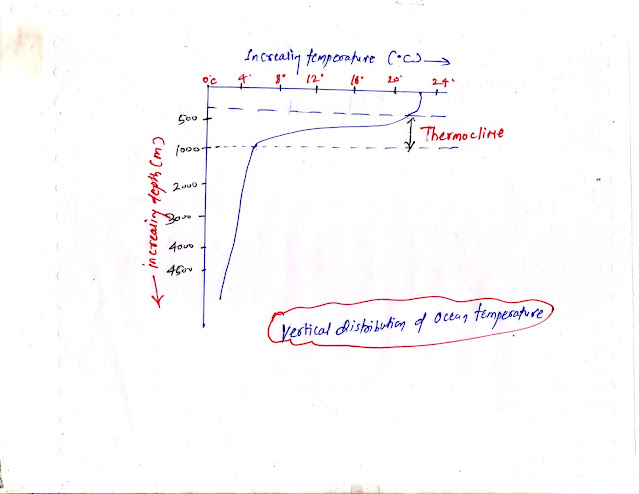 Increasing temperature (°C) →
0°C 4° 8° 12° 16° 20° 24°
500
Thermocline
1000
2000
3000
4000
4500
← increasing depth (m)
Vertical distribution of ocean temperature